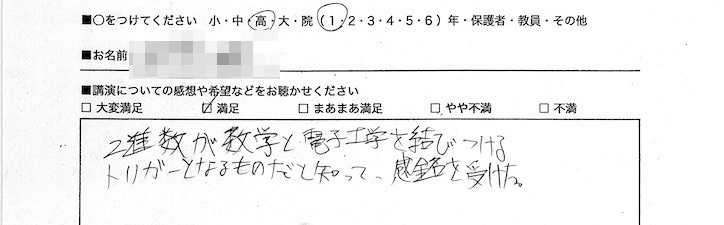 ■○をつけてください 小・中・高・大・院(1・2・3・4・5・6)年・保護者・教員・その他
■お名前
■講演についての感想や希望などをお聴かせください
□ 大変満足 ☑ 満足 □ まあまあ満足 □ やや不満 □ 不満
2進数が数学と電子工学を結びつける
トリガーとなるものだと知って、感銘を受けた。